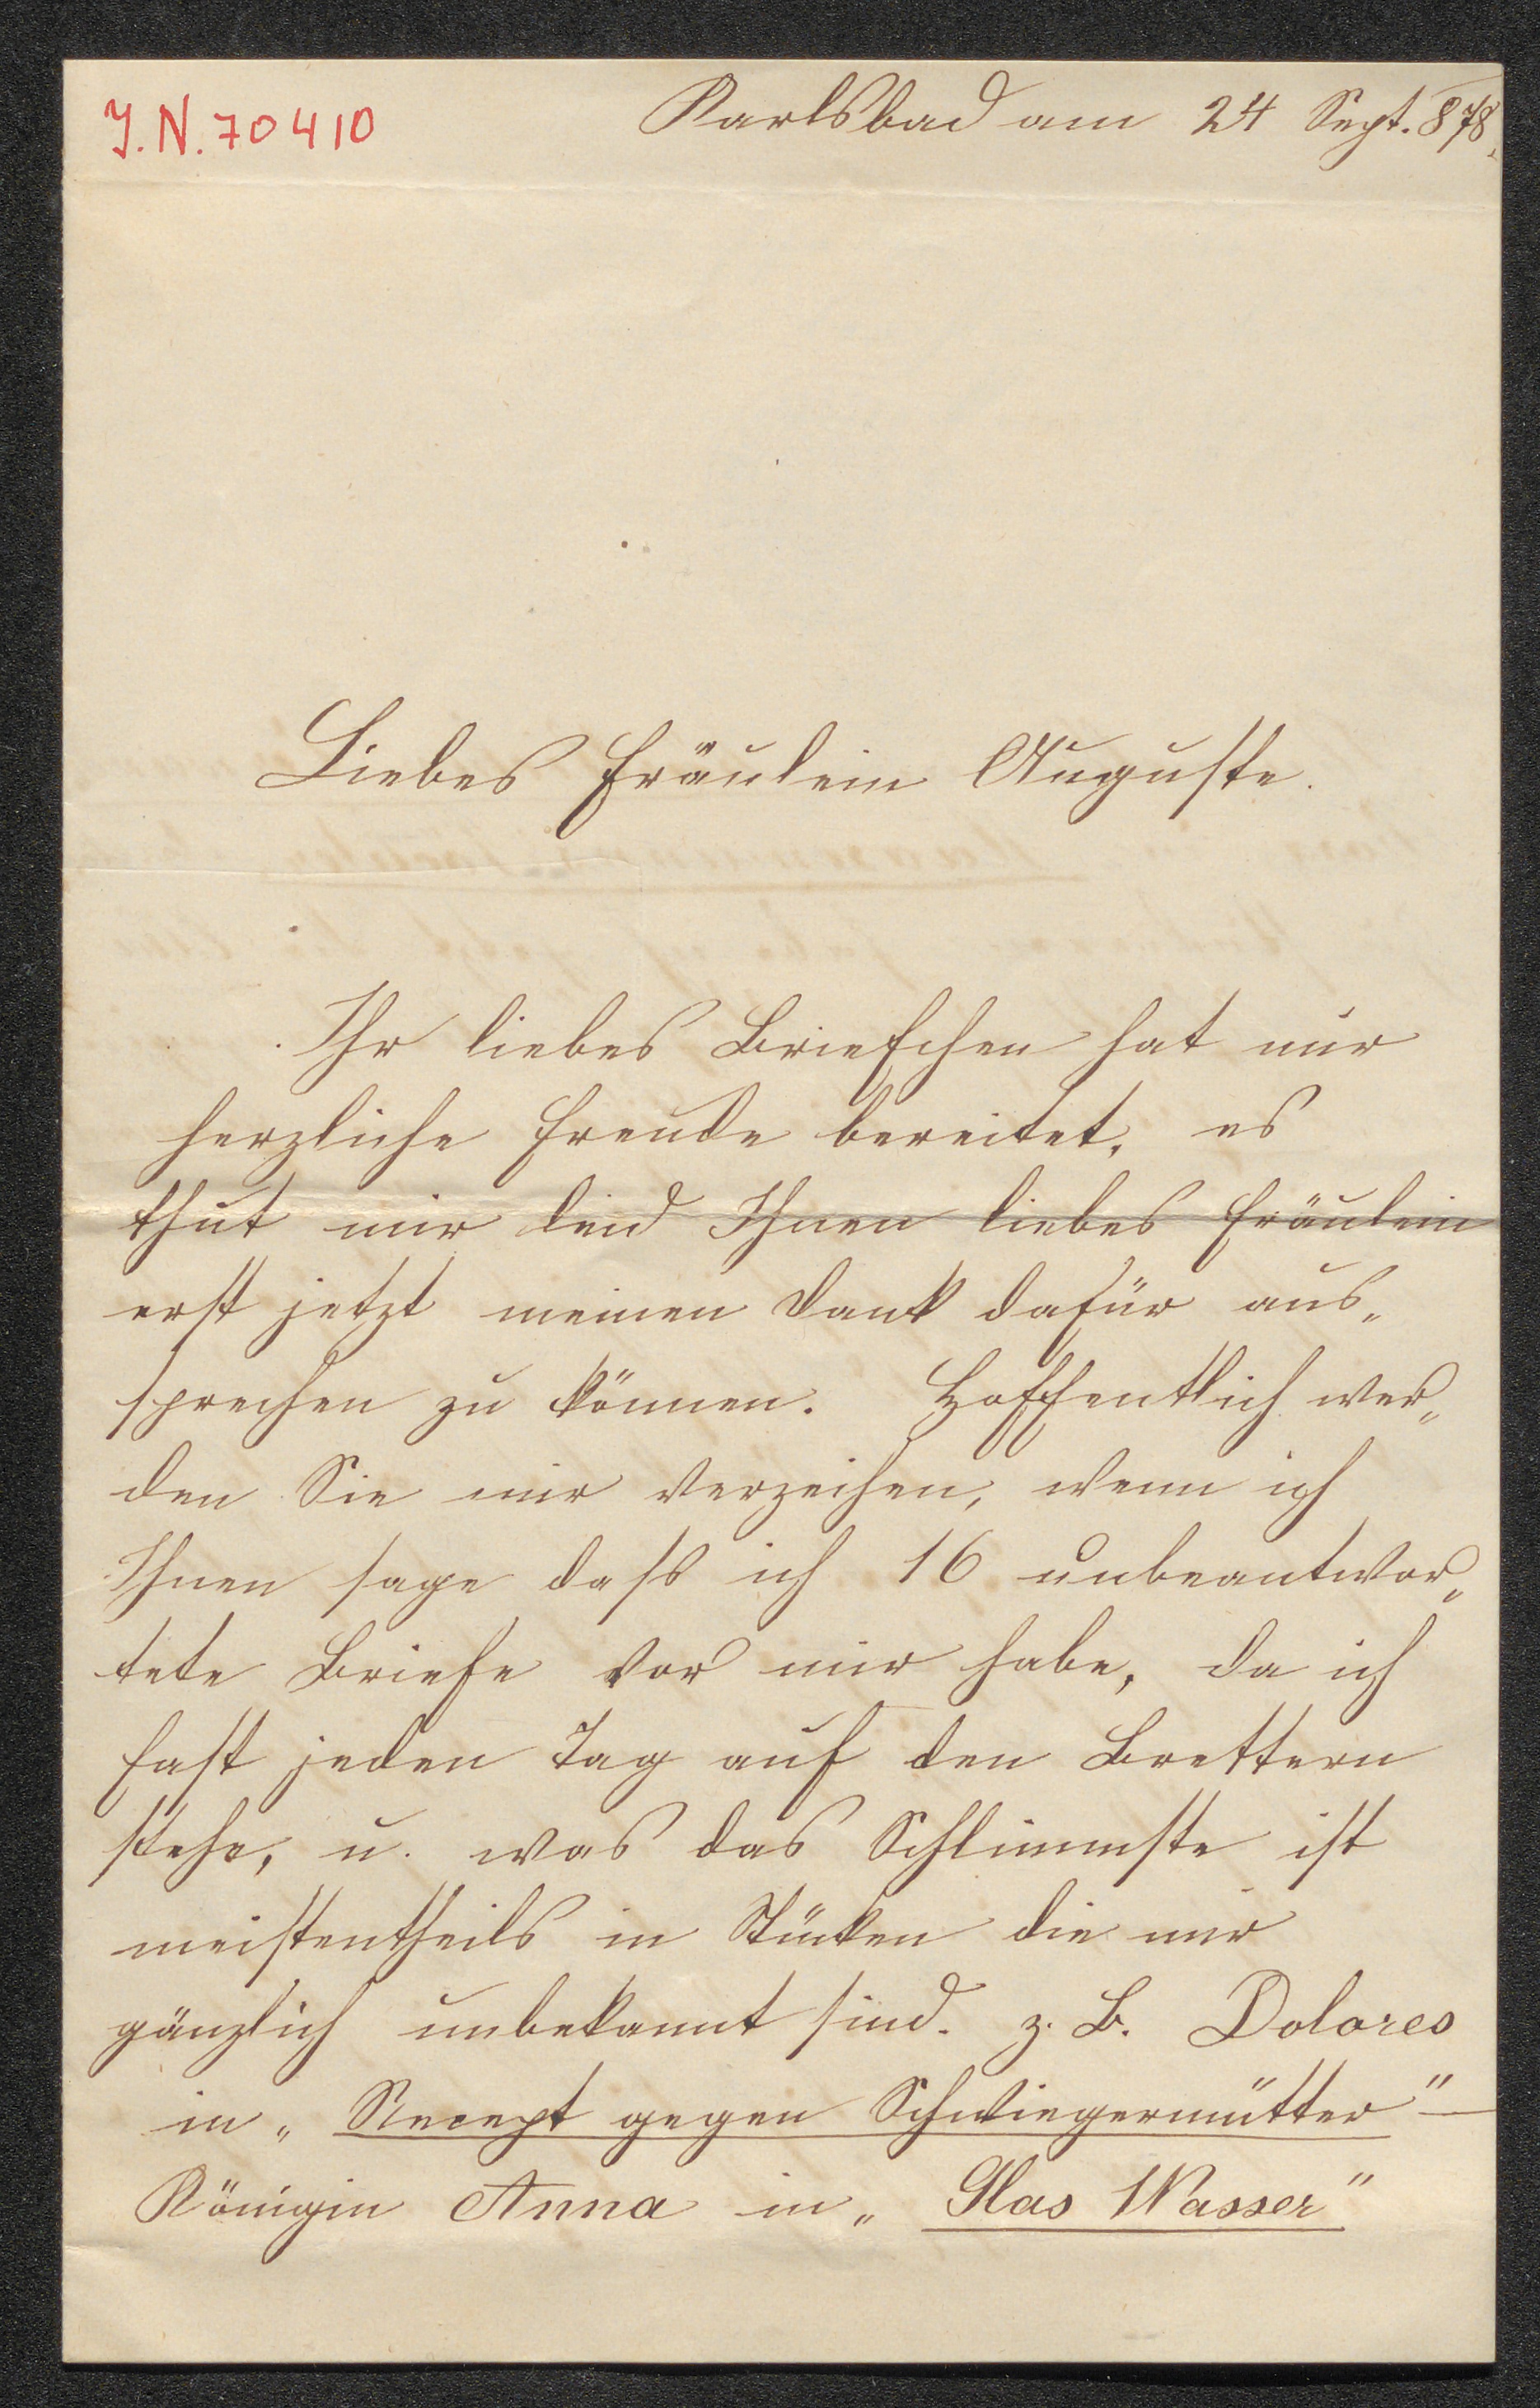 J.N. 70410
Karlsbad am 24 Sept. 878.
Liebes Fräulein Auguste.
Ihr liebes Briefchen hat mir
herzliche Freude bereitet, es
thut mir leid Ihnen liebes Fräulein
erst jetzt meinen Dank dafür aus„
sprechen zu können. Hoffentlich wer„
den Sie mir verzeihen, wenn ich
Ihnen sage daß ich 16 unbeantwor„
tete Briefe vor mir habe, da ich
fast jeden Tag auf den Brettern
stehe, u. was das Schlimmste ist
meistentheils in Stücken die mir
gänzlich unbekannt sind. z. B. Dolores
in „Recept gegen Schwiegermütter" —
Königin Anna in „Glas Wasser"